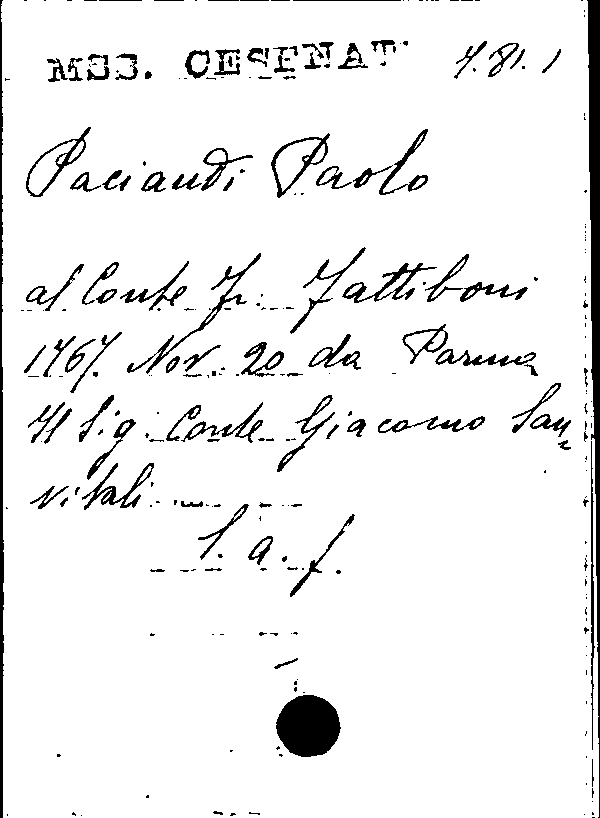 MSS. CESENAT. 7.81.1
Paciaudi Paolo
al Conte Fr. Fattiboni
1767. Nov. 20 da Parma
Il Sig. Conte Giacomo San=
vitali ....
l. a. f.